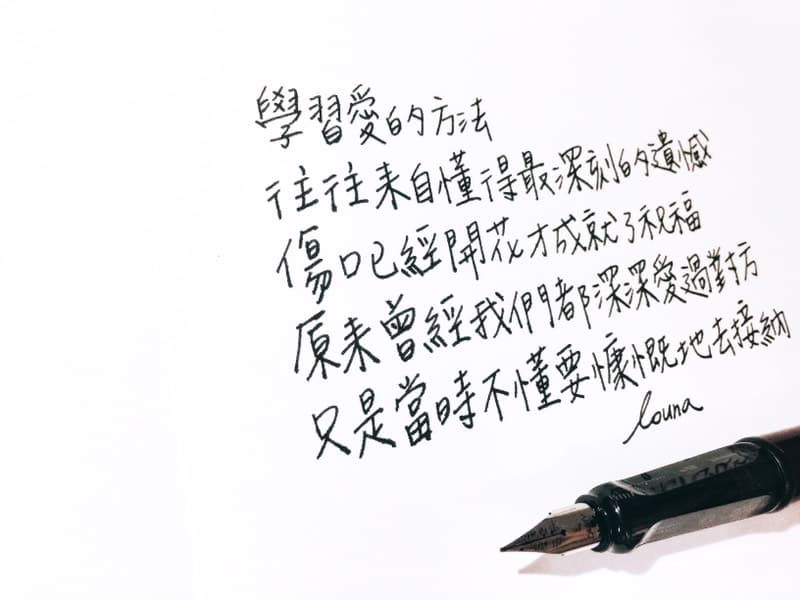 學習愛的方法
往往來自懂得最深刻的遺憾
傷口已經開花才成就了祝福
原來曾經我們都深深愛過對方
只是當時不懂要慷慨地去接納
louna